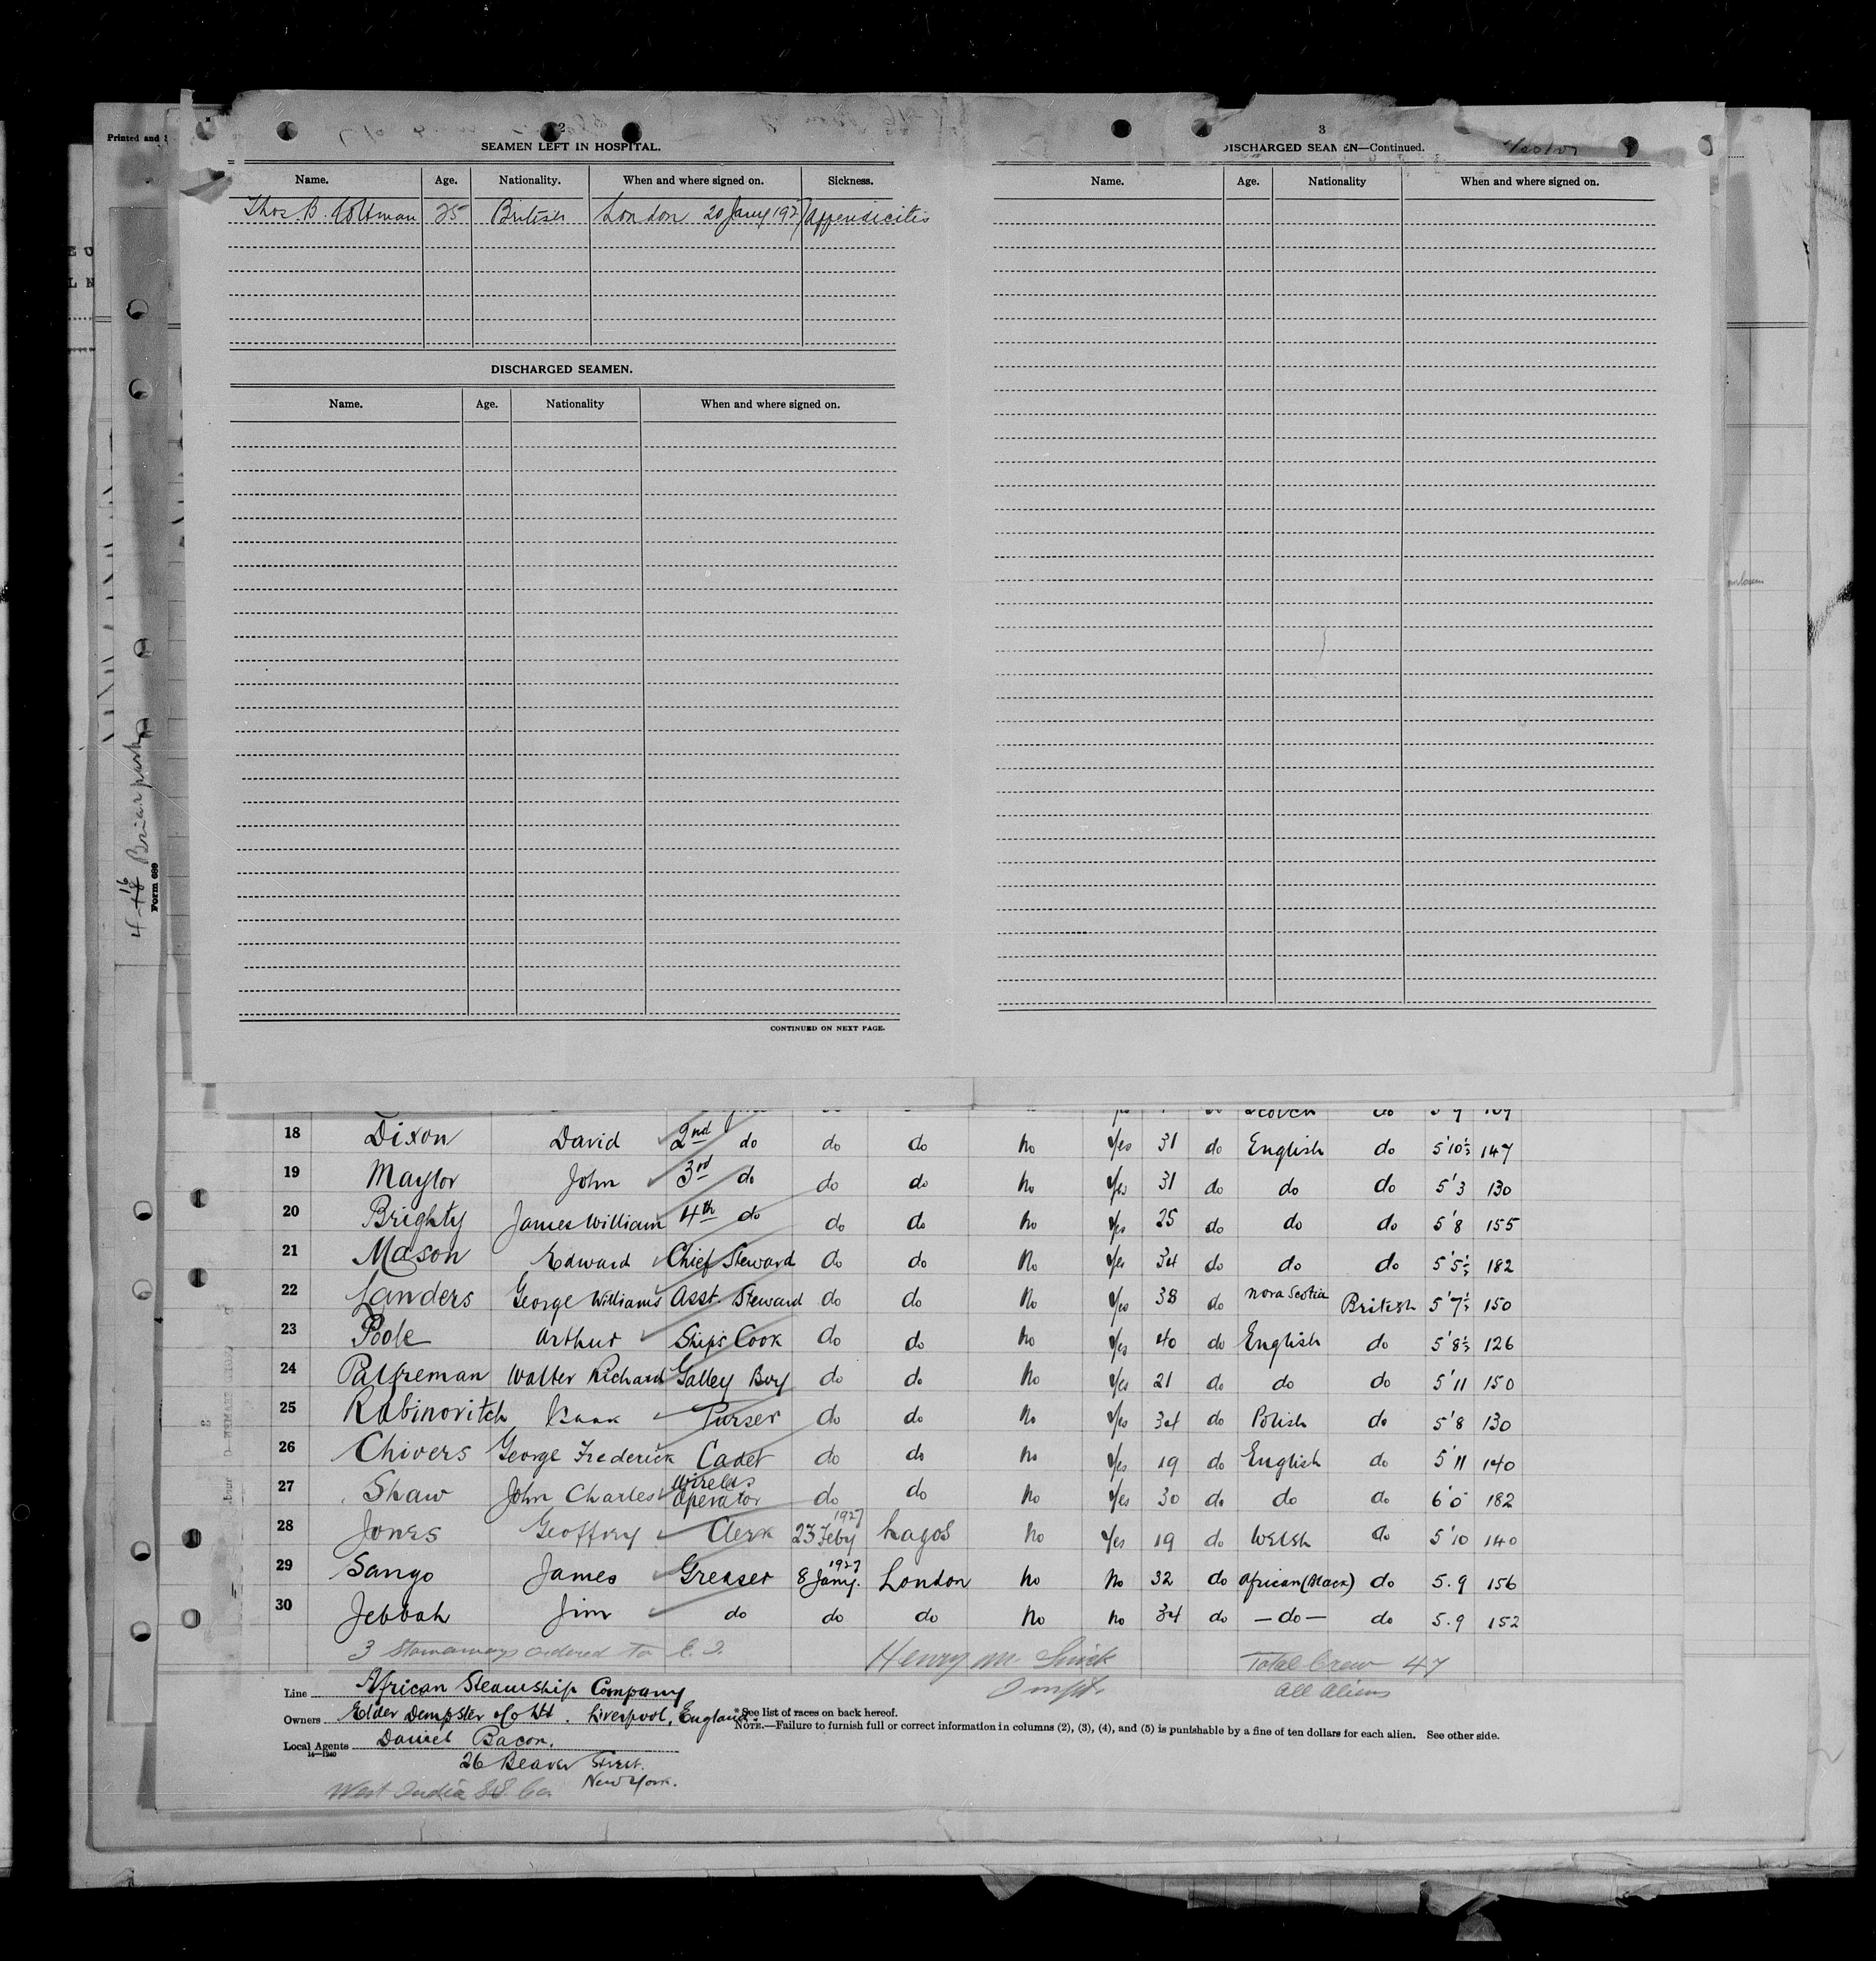 Printed and
2
SEAMEN LEFT IN HOSPITAL.
Name. Age. Nationality. When and where signed on. Sickness.
Thos. B. Coltman 25 British London 20 Jany 1927 Appendicitis
DISCHARGED SEAMEN.
Name. Age. Nationality When and where signed on.
CONTINUED ON NEXT PAGE.
3
DISCHARGED SEAMEN—Continued.
Name. Age. Nationality When and where signed on.
4 16 Briarpark
Form 680
18 Dixon David 2nd do do do No Yes 31 do English do 5'10½ 147
19 Maylor John 3rd do do do No Yes 31 do do do 5'3 130
20 Brighty James William 4th do do do No Yes 25 do do do 5'8 155
21 Mason Edward Chief Steward do do No Yes 34 do do do 5'5½ 182
22 Landers George Williams Asst. Steward do do No Yes 38 do Nova Scotia British 5'7½ 150
23 Poole Arthur Ship's Cook do do No Yes 40 do English do 5'8½ 126
24 Palfreman Walter Richard Galley Boy do do No Yes 21 do do do 5'11 150
25 Rabinovitch Isaak Purser do do No Yes 34 do Polish do 5'8 130
26 Chivers George Frederick Cadet do do No Yes 19 do English do 5'11 140
27 Shaw John Charles Wireless Operator do do No Yes 30 do do do 6'0 182
28 Jones Geoffrey Clerk 23 Feby 1927 Lagos No Yes 19 do Welsh do 5'10 140
29 Sango James Greaser 8 Jany. 1927 London No No 32 do African (Black) do 5.9 156
30 Jebbah Jim do do do No No 34 do —do— do 5.9 152
3 Stowaways ordered to E. I.
Henry M
Total Crew 47
All Aliens
Line African Steamship Company
Owners Elder Dempster & Co Ltd. Liverpool, England.
Local Agents Daniel Bacon.
14—1240
26 Beaver Street.
New York.
West India SS. Co.
* See list of races on back hereof.
NOTE.—Failure to furnish full or correct information in columns (2), (3), (4), and (5) is punishable by a fine of ten dollars for each alien. See other side.